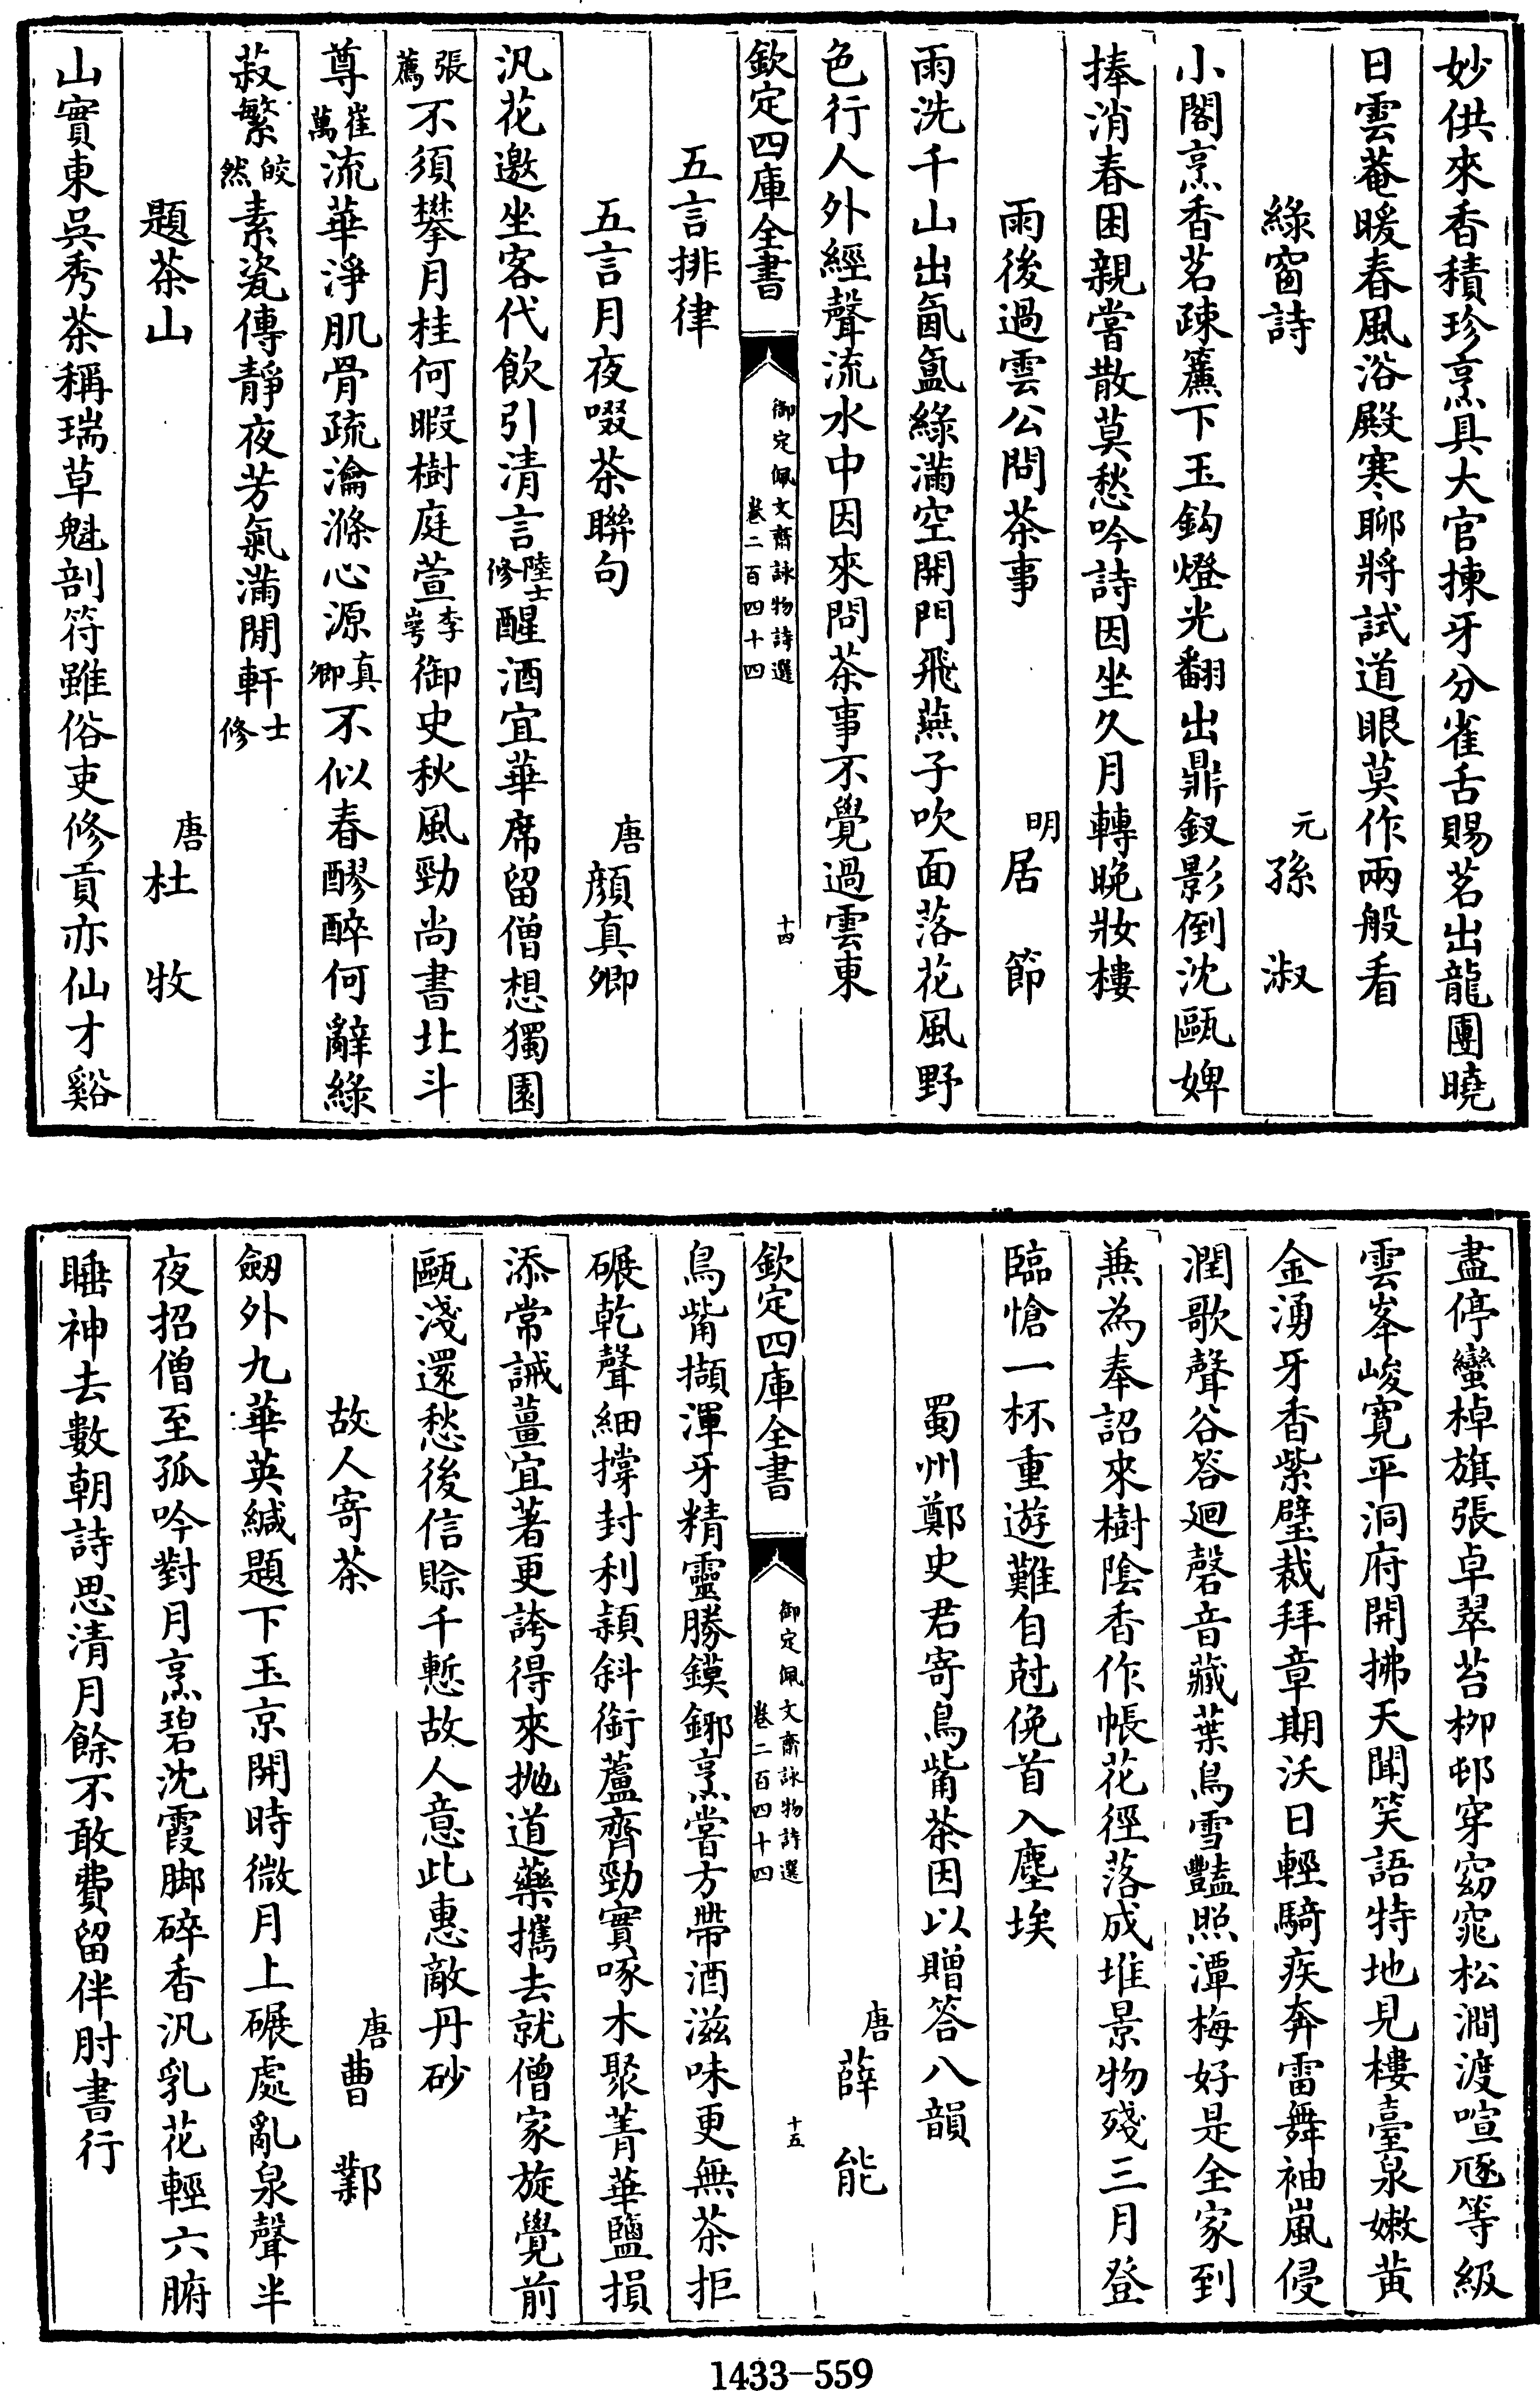 妙供來香積珍烹具大官揀牙分雀舌賜茗出龍團曉
日雲菴暖春風浴殿寒聊將試道眼莫作兩般看
綠窗詩 元孫淑
小閣烹香茗疎簾下玉鈎燈光翻出鼎釵影倒沈甌婢
捧消春困親嘗散莫愁吟詩因坐久月轉晚妝樓
雨後過雲公問茶事 明居節
雨洗千山出氤氲綠滿空開門飛燕子吹面落花風野
色行人外經聲流水中因來問茶事不覺過雲東
欽定四庫全書 御定佩文齋詠物詩選 卷二百四十四 十四
五言排律
五言月夜啜茶聯句 唐顔真卿
汎花邀坐客代飲引清言陸士修醒酒宜華席留僧想獨園
張薦不須攀月桂何暇樹庭萱李崿御史秋風勁尚書北斗
尊崔萬流華淨肌骨疏瀹滌心源真卿不似春醪醉何辭綠
菽繁皎然素瓷傳靜夜芳氣滿閒軒士修
題茶山 唐杜牧
山實東吳秀茶稱瑞草魁剖符雖俗吏修貢亦仙才谿
盡停蠻棹旗張卓翠苔柳邨穿窈窕松澗渡喧豗等級
雲峯峻寬平洞府開拂天聞笑語特地見樓臺泉嫩黃
金湧牙香紫璧裁拜章期沃日輕騎疾奔雷舞袖嵐侵
潤歌聲谷答迴磬音藏葉鳥雪豔照潭梅好是全家到
兼為奉詔來樹陰香作帳花徑落成堆景物殘三月登
臨愴一杯重遊難自尅俛首入塵埃
蜀州鄭史君寄鳥觜茶因以贈答八韻
唐薛能
欽定四庫全書 御定佩文齋詠物詩選 卷二百四十四 十五
鳥觜擷渾牙精靈勝鏌鋣烹嘗方帶酒滋味更無茶拒
碾乾聲細撐封利穎斜銜蘆齊勁實啄木聚菁華鹽損
添常誡薑宜著更誇得來拋道藥攜去就僧家旋覺前
甌淺還愁後信賒千慙故人意此惠敵丹砂
故人寄茶 唐曹鄴
劒外九華英緘題下玉京開時微月上碾處亂泉聲半
夜招僧至孤吟對月烹碧沈霞脚碎香汎乳花輕六腑
睡神去數朝詩思清月餘不敢費留伴肘書行
1433-559